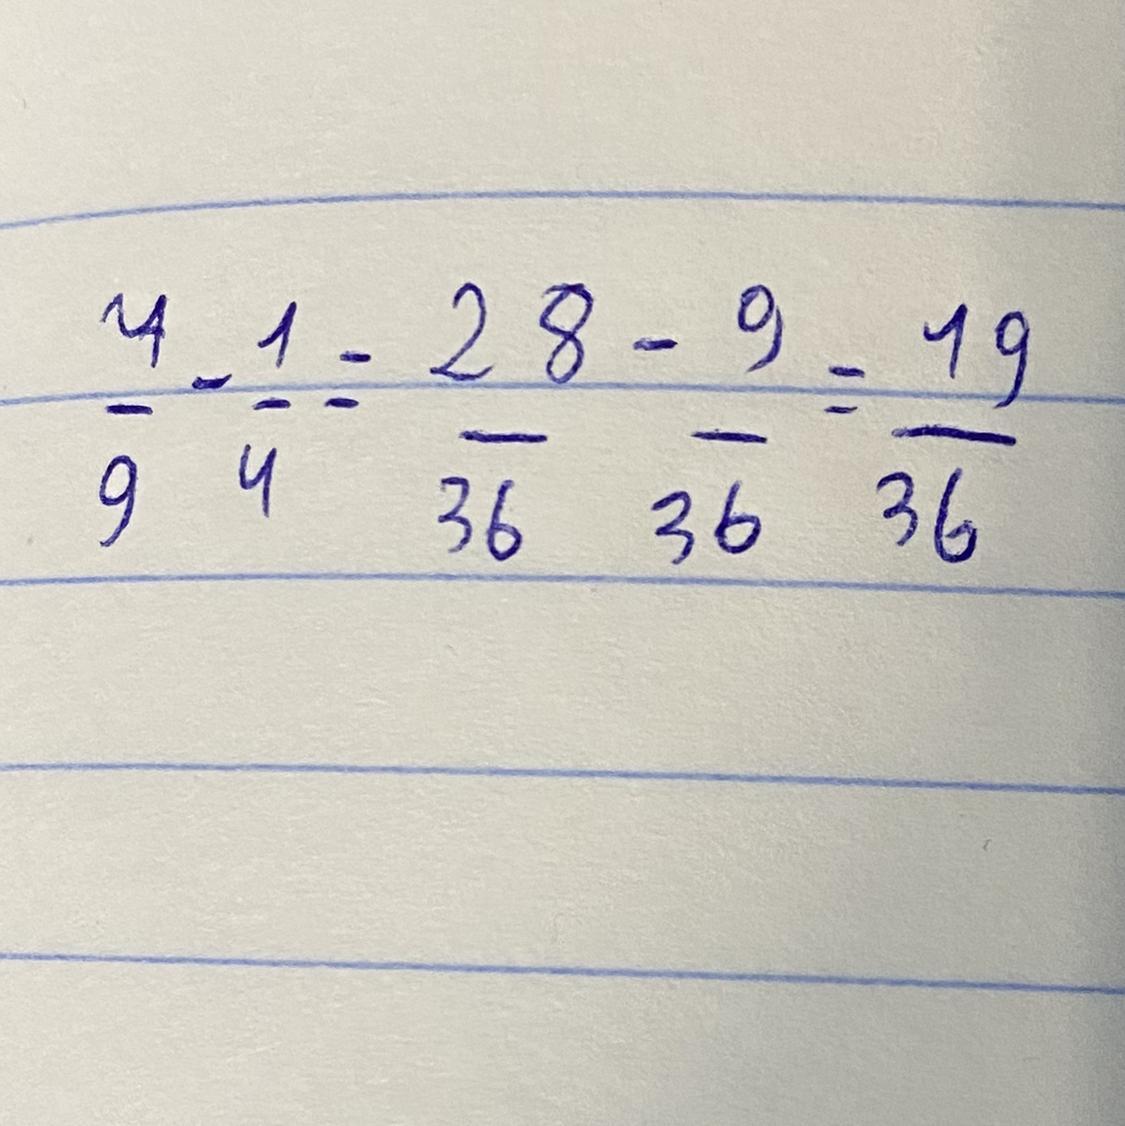 7/9 - 1/4 = 28/36 - 9/36 = 19/36